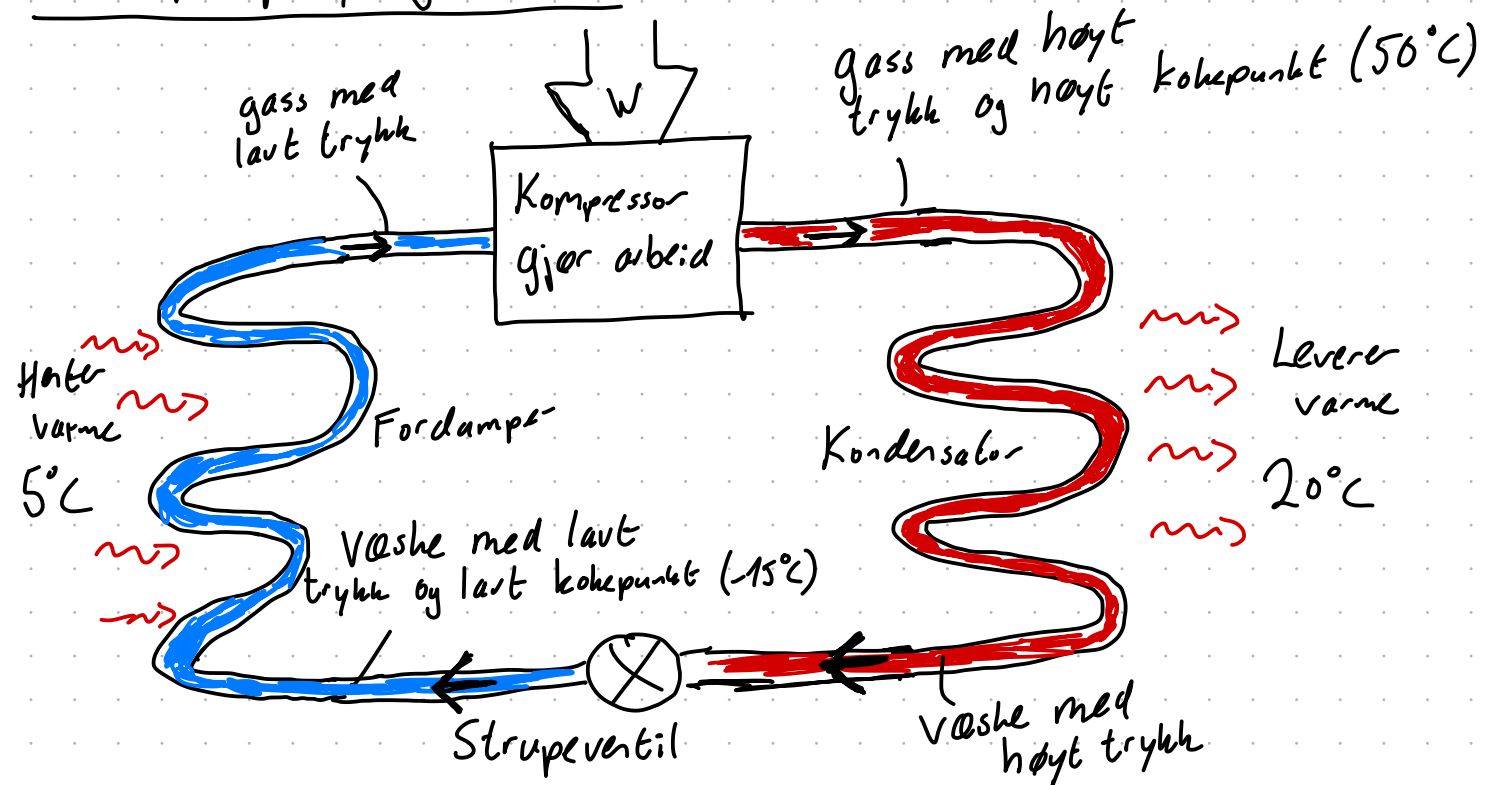 gass med
lavt trykk
W
gass med høyt
trykk og høyt kokepunkt (50°C)
Kompressor
gjør arbeid
Henter
varme
5°C
Fordamper
Kondensator
Leverer
varme
20°C
Væske med lavt
trykk og lavt kokepunkt (-15°C)
Strupeventil
Væske med
høyt trykk